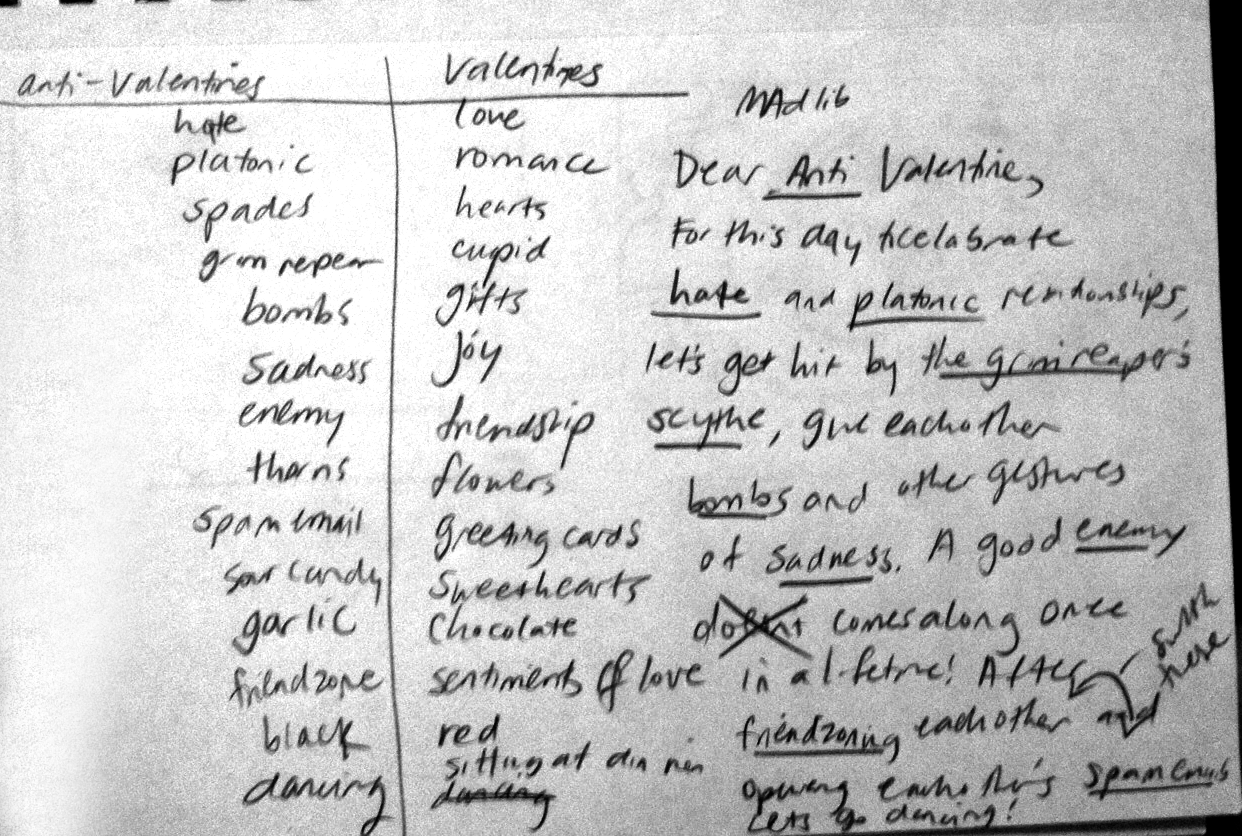 Anti-Valentines
hate
platonic
spades
grim repear
bombs
sadness
enemy
thorns
spam email
sour candy
garlic
friendzone
black
dancing
Valentines
love
romance
hearts
cupid
gifts
joy
friendship
flowers
greeting cards
Sweethearts
Chocolate
sentiments of love
red
sitting at dinner
dancing
MAdlib
Dear Anti Valentine,
For this day celabrate
hate and platonic relationships,
let's get hit by the grim reaper's
scythe, give eachother
bombs and other gestures
of sadness. A good enemy
doesnt comes along once
in a lifetime! After
switch here
friendzoning eachother and
opening eachother's spam emails
Lets go dancing!